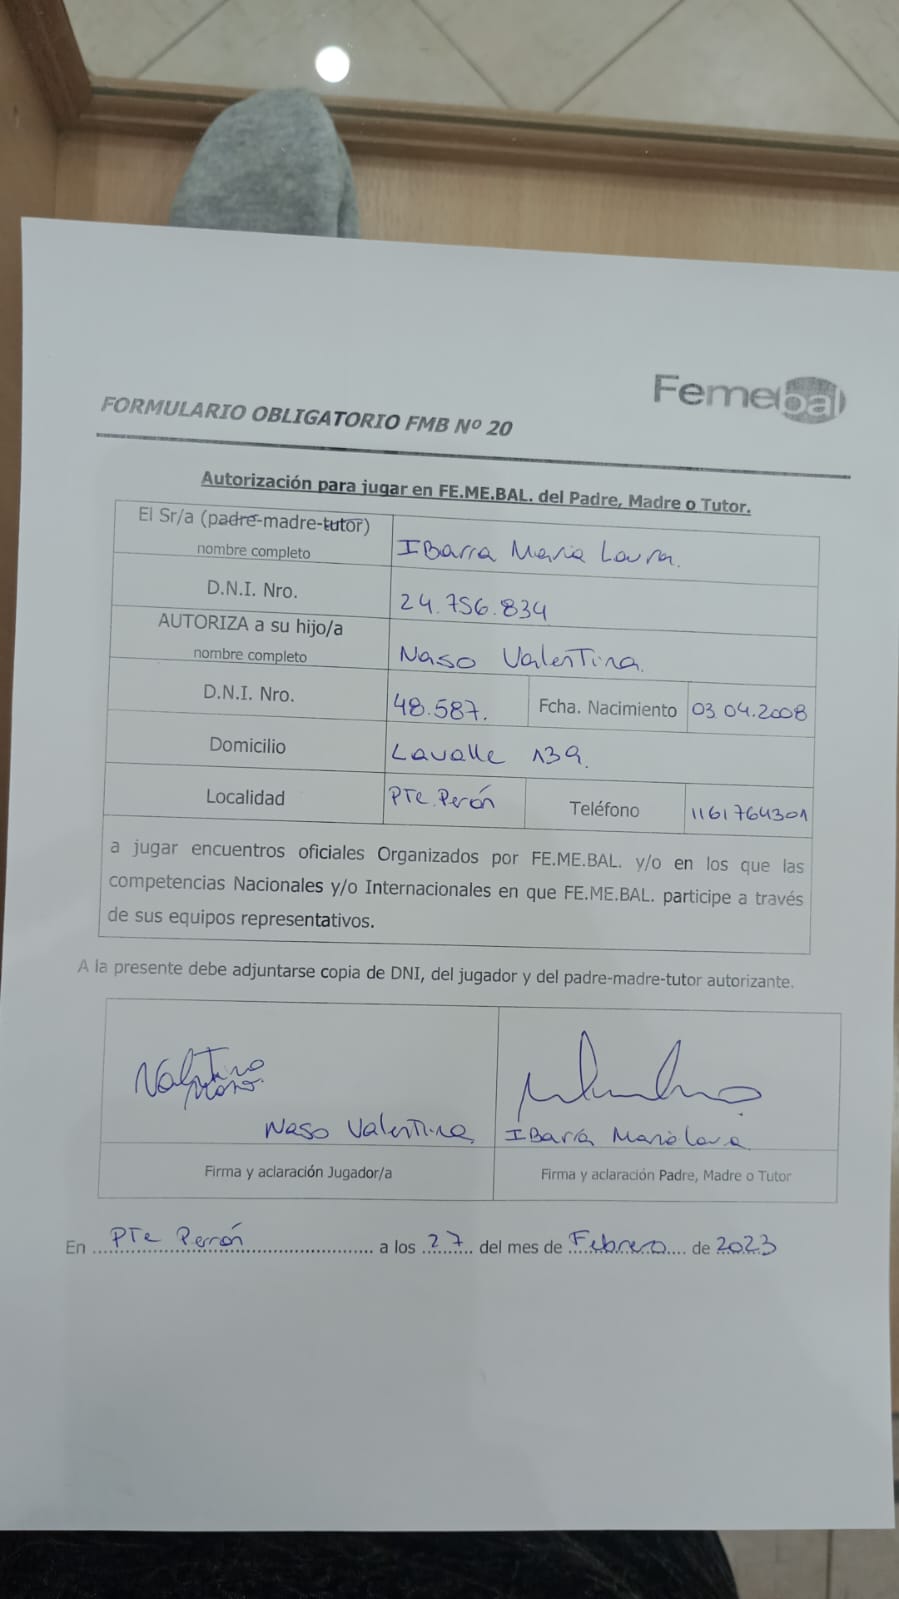 Femebal
FORMULARIO OBLIGATORIO FMB Nº 20
Autorización para jugar en FE.ME.BAL. del Padre, Madre o Tutor.
El Sr/a (padre-madre-tutor)
nombre completo
IBarra Maria Laura.
D.N.I. Nro. 24.756.834
AUTORIZA a su hijo/a
nombre completo
Naso Valentina.
D.N.I. Nro. 48.587. Fcha. Nacimiento 03.04.2008
Domicilio Lavalle 139.
Localidad PTe.Perón Teléfono 1161764301
a jugar encuentros oficiales Organizados por FE.ME.BAL. y/o en los que las
competencias Nacionales y/o Internacionales en que FE.ME.BAL. participe a través
de sus equipos representativos.
A la presente debe adjuntarse copia de DNI, del jugador y del padre-madre-tutor autorizante.
Valentina
Naso Valentina IBarra Maria Laura
Firma y aclaración Jugador/a Firma y aclaración Padre, Madre o Tutor
En PTe Perón a los 27 del mes de Febrero de 2023